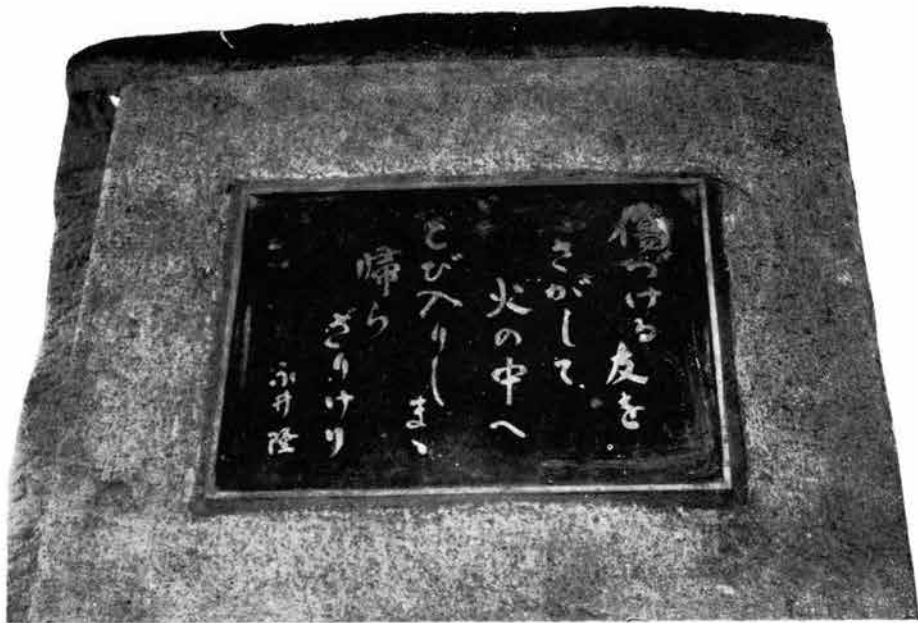 傷づける友を
さがして
火の中へ
とび入りしまゝ
帰ら
ざりけり
永井隆